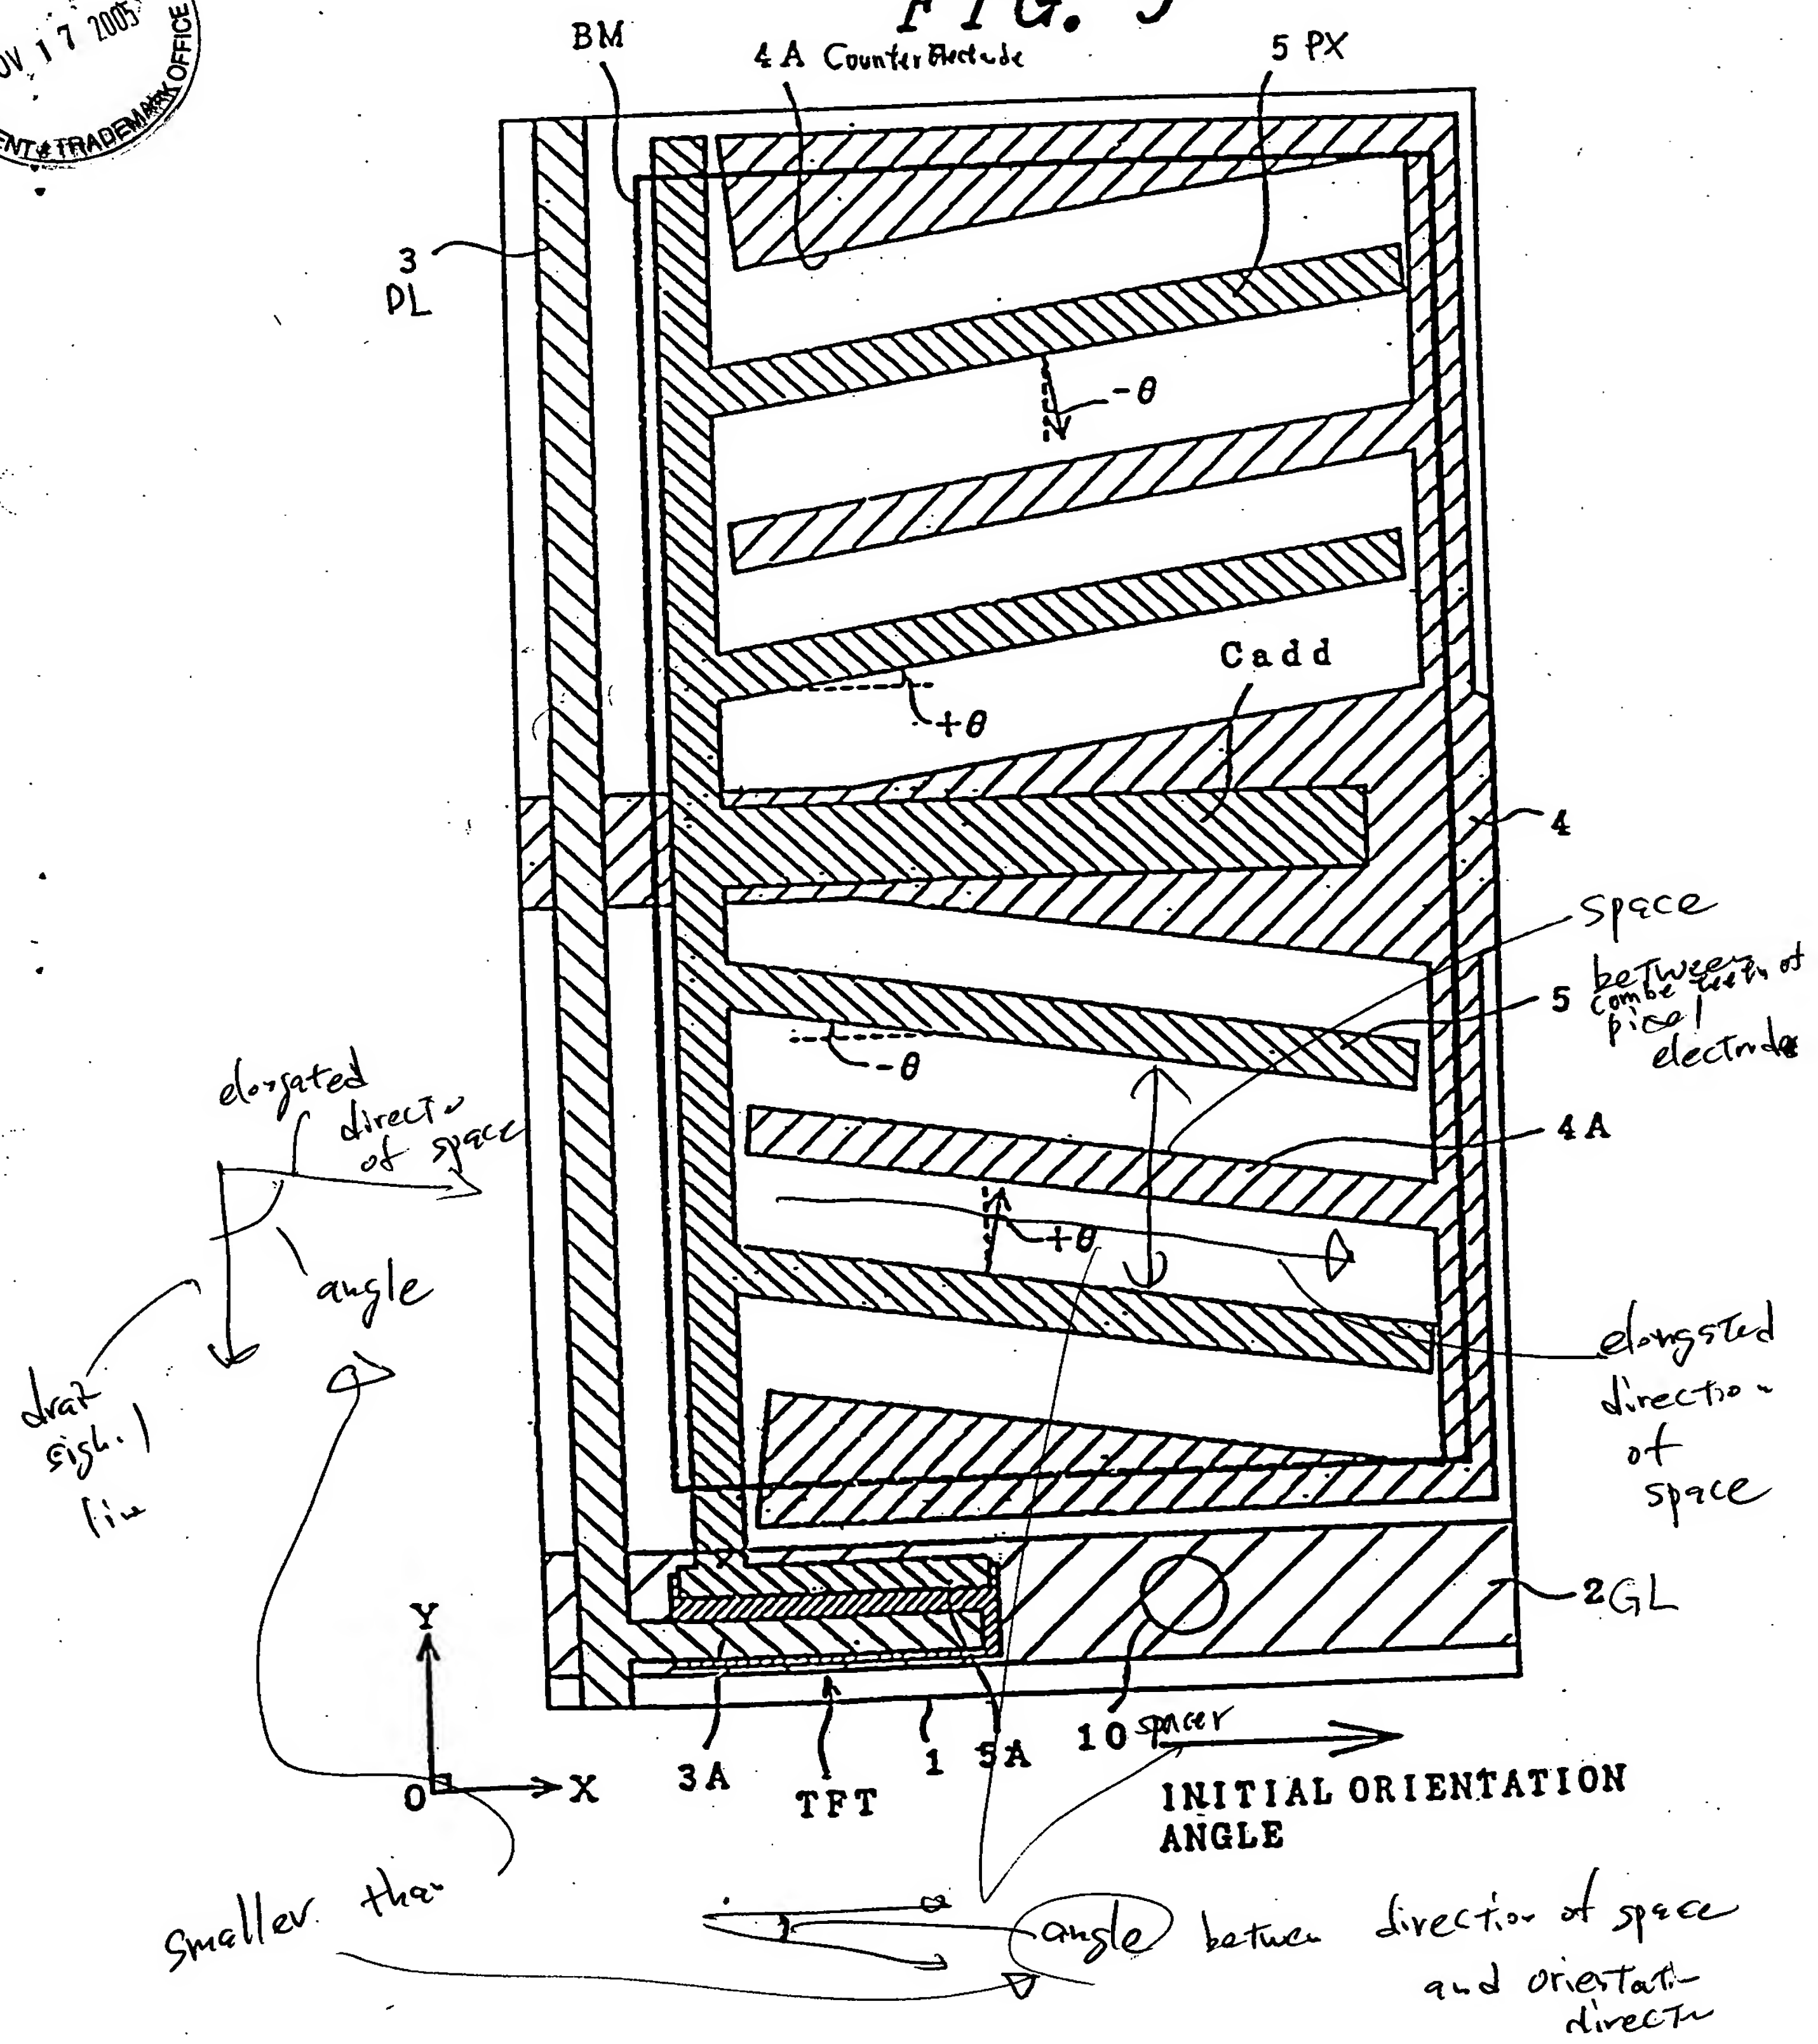 NOV 17 2005
ENT & TRADEMARK OFFICE
FIG.
BM
4A Counter Electrode
5 PX
3
DL
-θ
+θ
Cadd
4
space
between
combe teeth of
5
pixel
electrode
-θ
elongated
direct
of space
angle
4A
+θ
elongated
direction
of
space
line
2 GL
Y
O
X
3A
TFT
1
5A
10 spacer
INITIAL ORIENTATION
ANGLE
smaller than
angle between direction of space
and orientati
direct